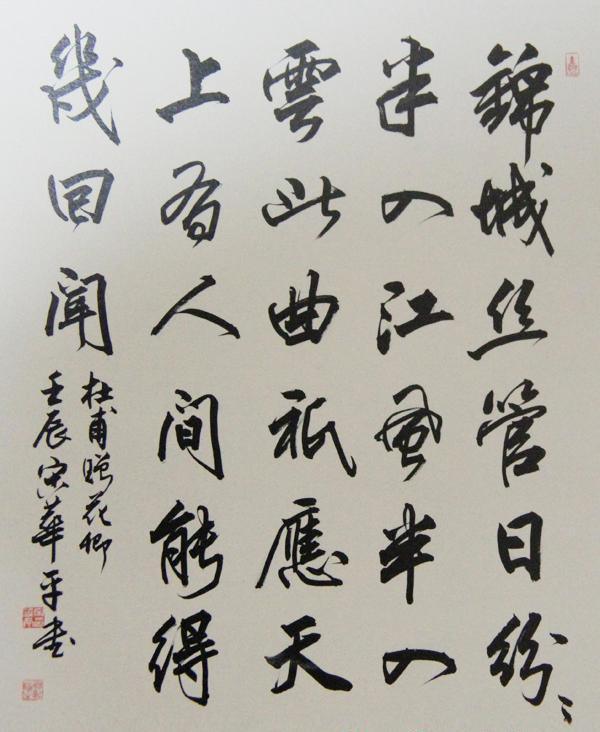 錦城丝管日紛〻
半入江風半入
雲此曲祇應天
上有人间能得
幾回闻
杜甫贈花卿
壬辰宋華平书